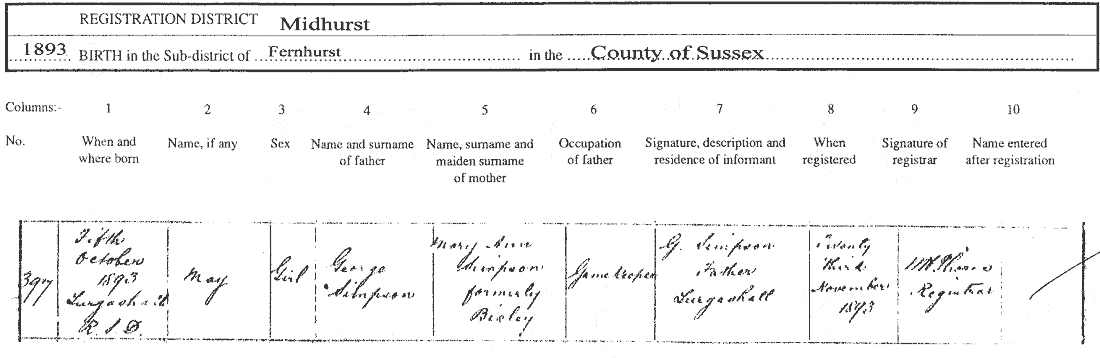 REGISTRATION DISTRICT Midhurst
1893 BIRTH in the Sub-district of Fernhurst in the County of Sussex
Columns:- 1 2 3 4 5 6 7 8 9 10
No. When and where born Name, if any Sex Name and surname of father Name, surname and maiden surname of mother Occupation of father Signature, description and residence of informant When registered Signature of registrar Name entered after registration
397
Fifth
October
1893
Lurgashall
R.S.D.
May
Girl
George
Simpson
Mary Ann
Simpson
formerly
Bexley
Gamekeeper
G. Simpson
Father
Lurgashall
Twenty
third
November
1893
Registrar